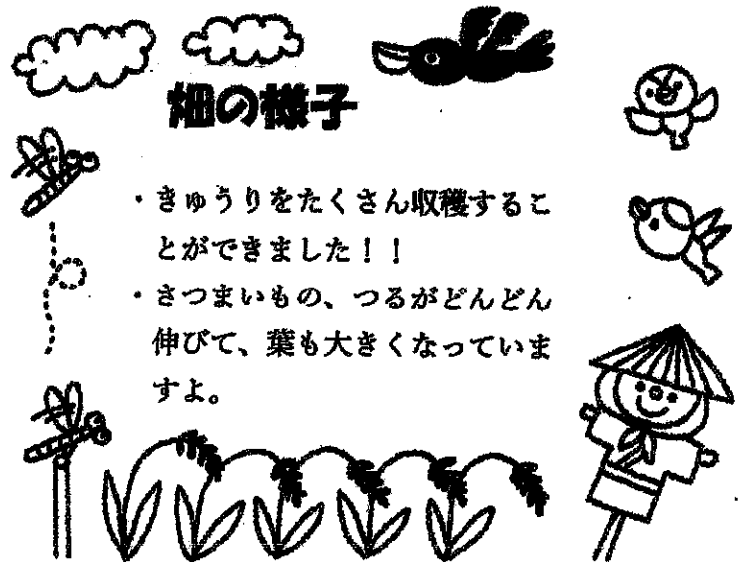 畑の様子
・きゅうりをたくさん収穫するこ
とができました！！
・さつまいもの、つるがどんどん
伸びて、葉も大きくなっていま
すよ。